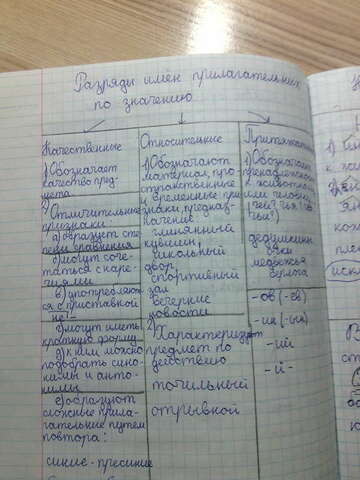 Разряды имён прилагательных
по значению
Качественные
1) Обозначает
качество пред-
мета
2) Отличительные
признаки
а) образует сте
пени сравнения
б) могут соче-
таться с наре-
чиями
в) употребляют
ся с приставкой
не!-
г) могут иметь
краткую форму
д) к ним можно
подобрать сино-
нимы и анто-
нимы
е) образуют
сложные прила-
гательные путём
повтора:
синие-пресиние
Относительные
1) Обозначают
материал, про
странственные
и временные при
знаки, предназ-
начение
глиняный
кувшин,
школьный
двор,
спортивный
зал
вечерние
новости
2) Характеризует
предмет по
действию
точильный
отрывной
Притяжательные
1) Обозначает
принадлежность
к животному
или человеку
(чей? чья? чьё?
чьи?)
дедушкины
очки
медвежья
берлога
-ов(-ев)
-ин(-ын)
-ий
-й-